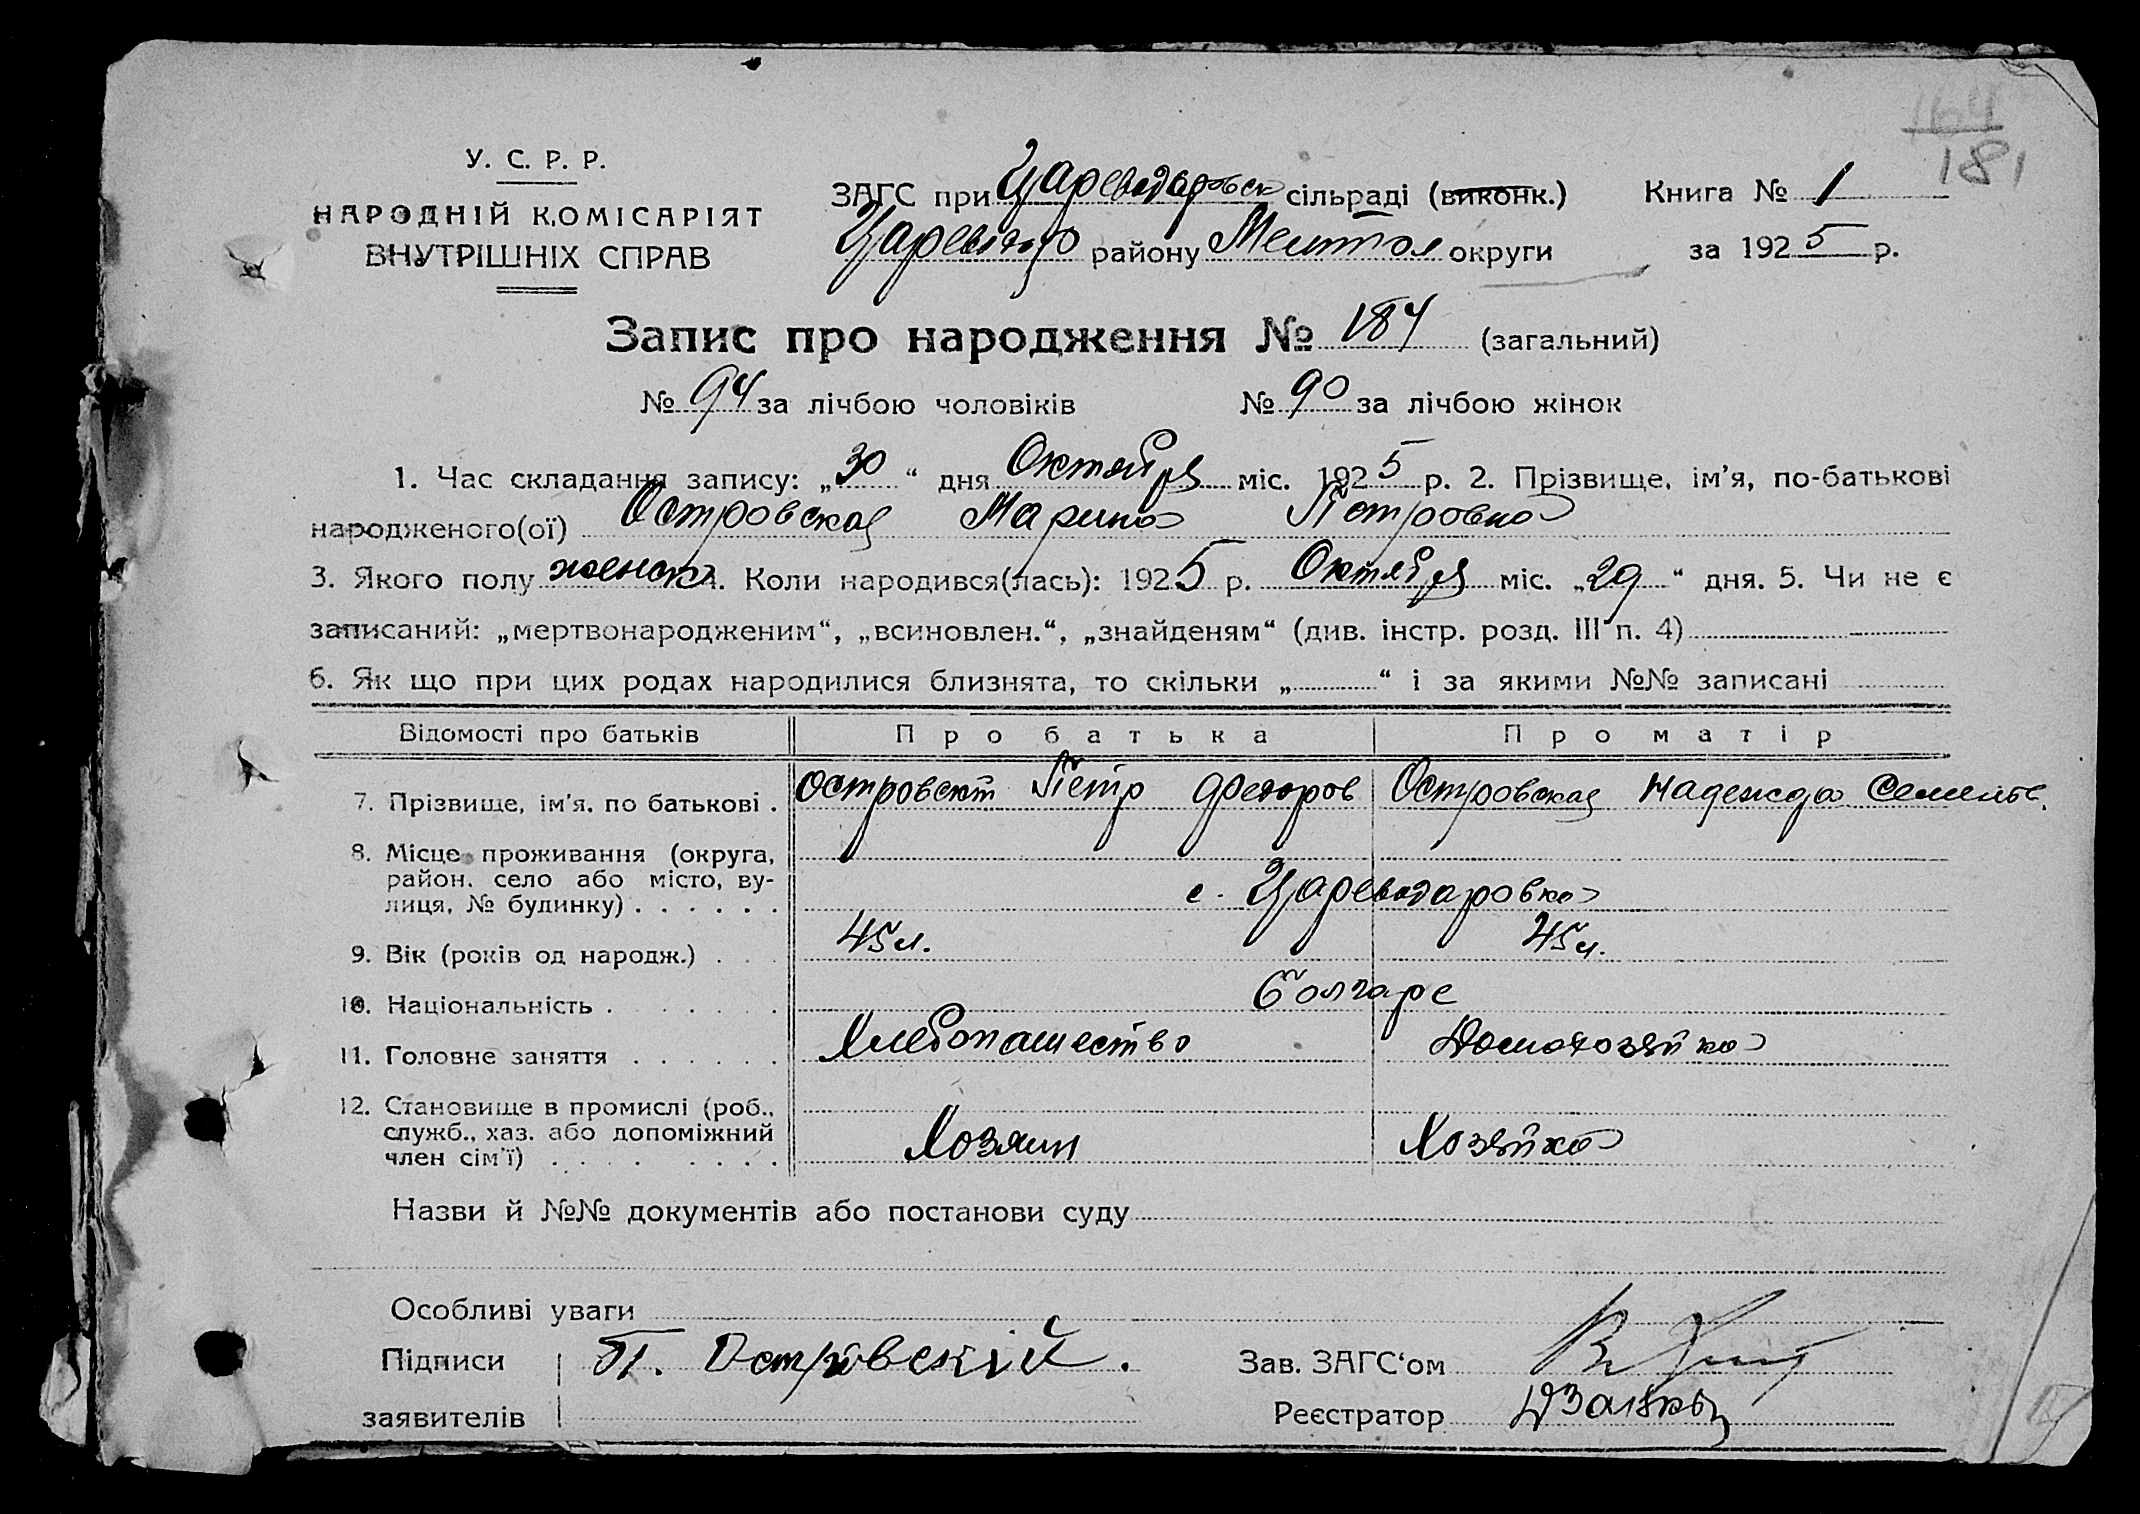 164
181
У. С. Р. Р.
НАРОДНІЙ КОМІСАРІЯТ
ВНУТРІШНІХ СПРАВ
ЗАГС при Цареводаровск сільраді (виконк.) Книга № 1
Царевод району Мелитоп округи за 1925 р.
Запис про народження № 184 (загальний)
№ 94 за лічбою чоловіків № 90 за лічбою жінок
1. Час складання запису: „30“ дня Октября міс. 1925 р. 2. Прізвище, ім'я, по-батькові
народженого(ої) Островская Марина Петровна
3. Якого полу женска. Коли народився(лась): 1925 р. Октября міс. „29“ дня. 5. Чи не є
записаний: „мертвонародженим“, „всиновлен.“, „знайденям“ (див. інстр. розд. III п. 4)
6. Як що при цих родах народилися близнята, то скільки „ “ і за якими №№ записані
Відомості про батьків Про батька Про матір
7. Прізвище, ім'я, по батькові . Островскій Петр Федоров Островская Надежда Семенов.
8. Місце проживання (округа,
район, село або місто, ву-
лиця, № будинку) . . . . . . с. Цареводаровка
9. Вік (років од народж.) . . . 45 л. 45 л.
10. Національність . . . . . . . Болгаре
11. Головне заняття . . . . . . Хлебопашество Домохозяйка
12. Становище в промислі (роб.,
служб., хаз. або допоміжний
член сім'ї) . . . . . . . . Хозяин Хозяйка
Назви й №№ документів або постанови суду
Особливі уваги
Підписи П. Островскій.
заявителів
Зав. ЗАГС'ом
Реєстратор